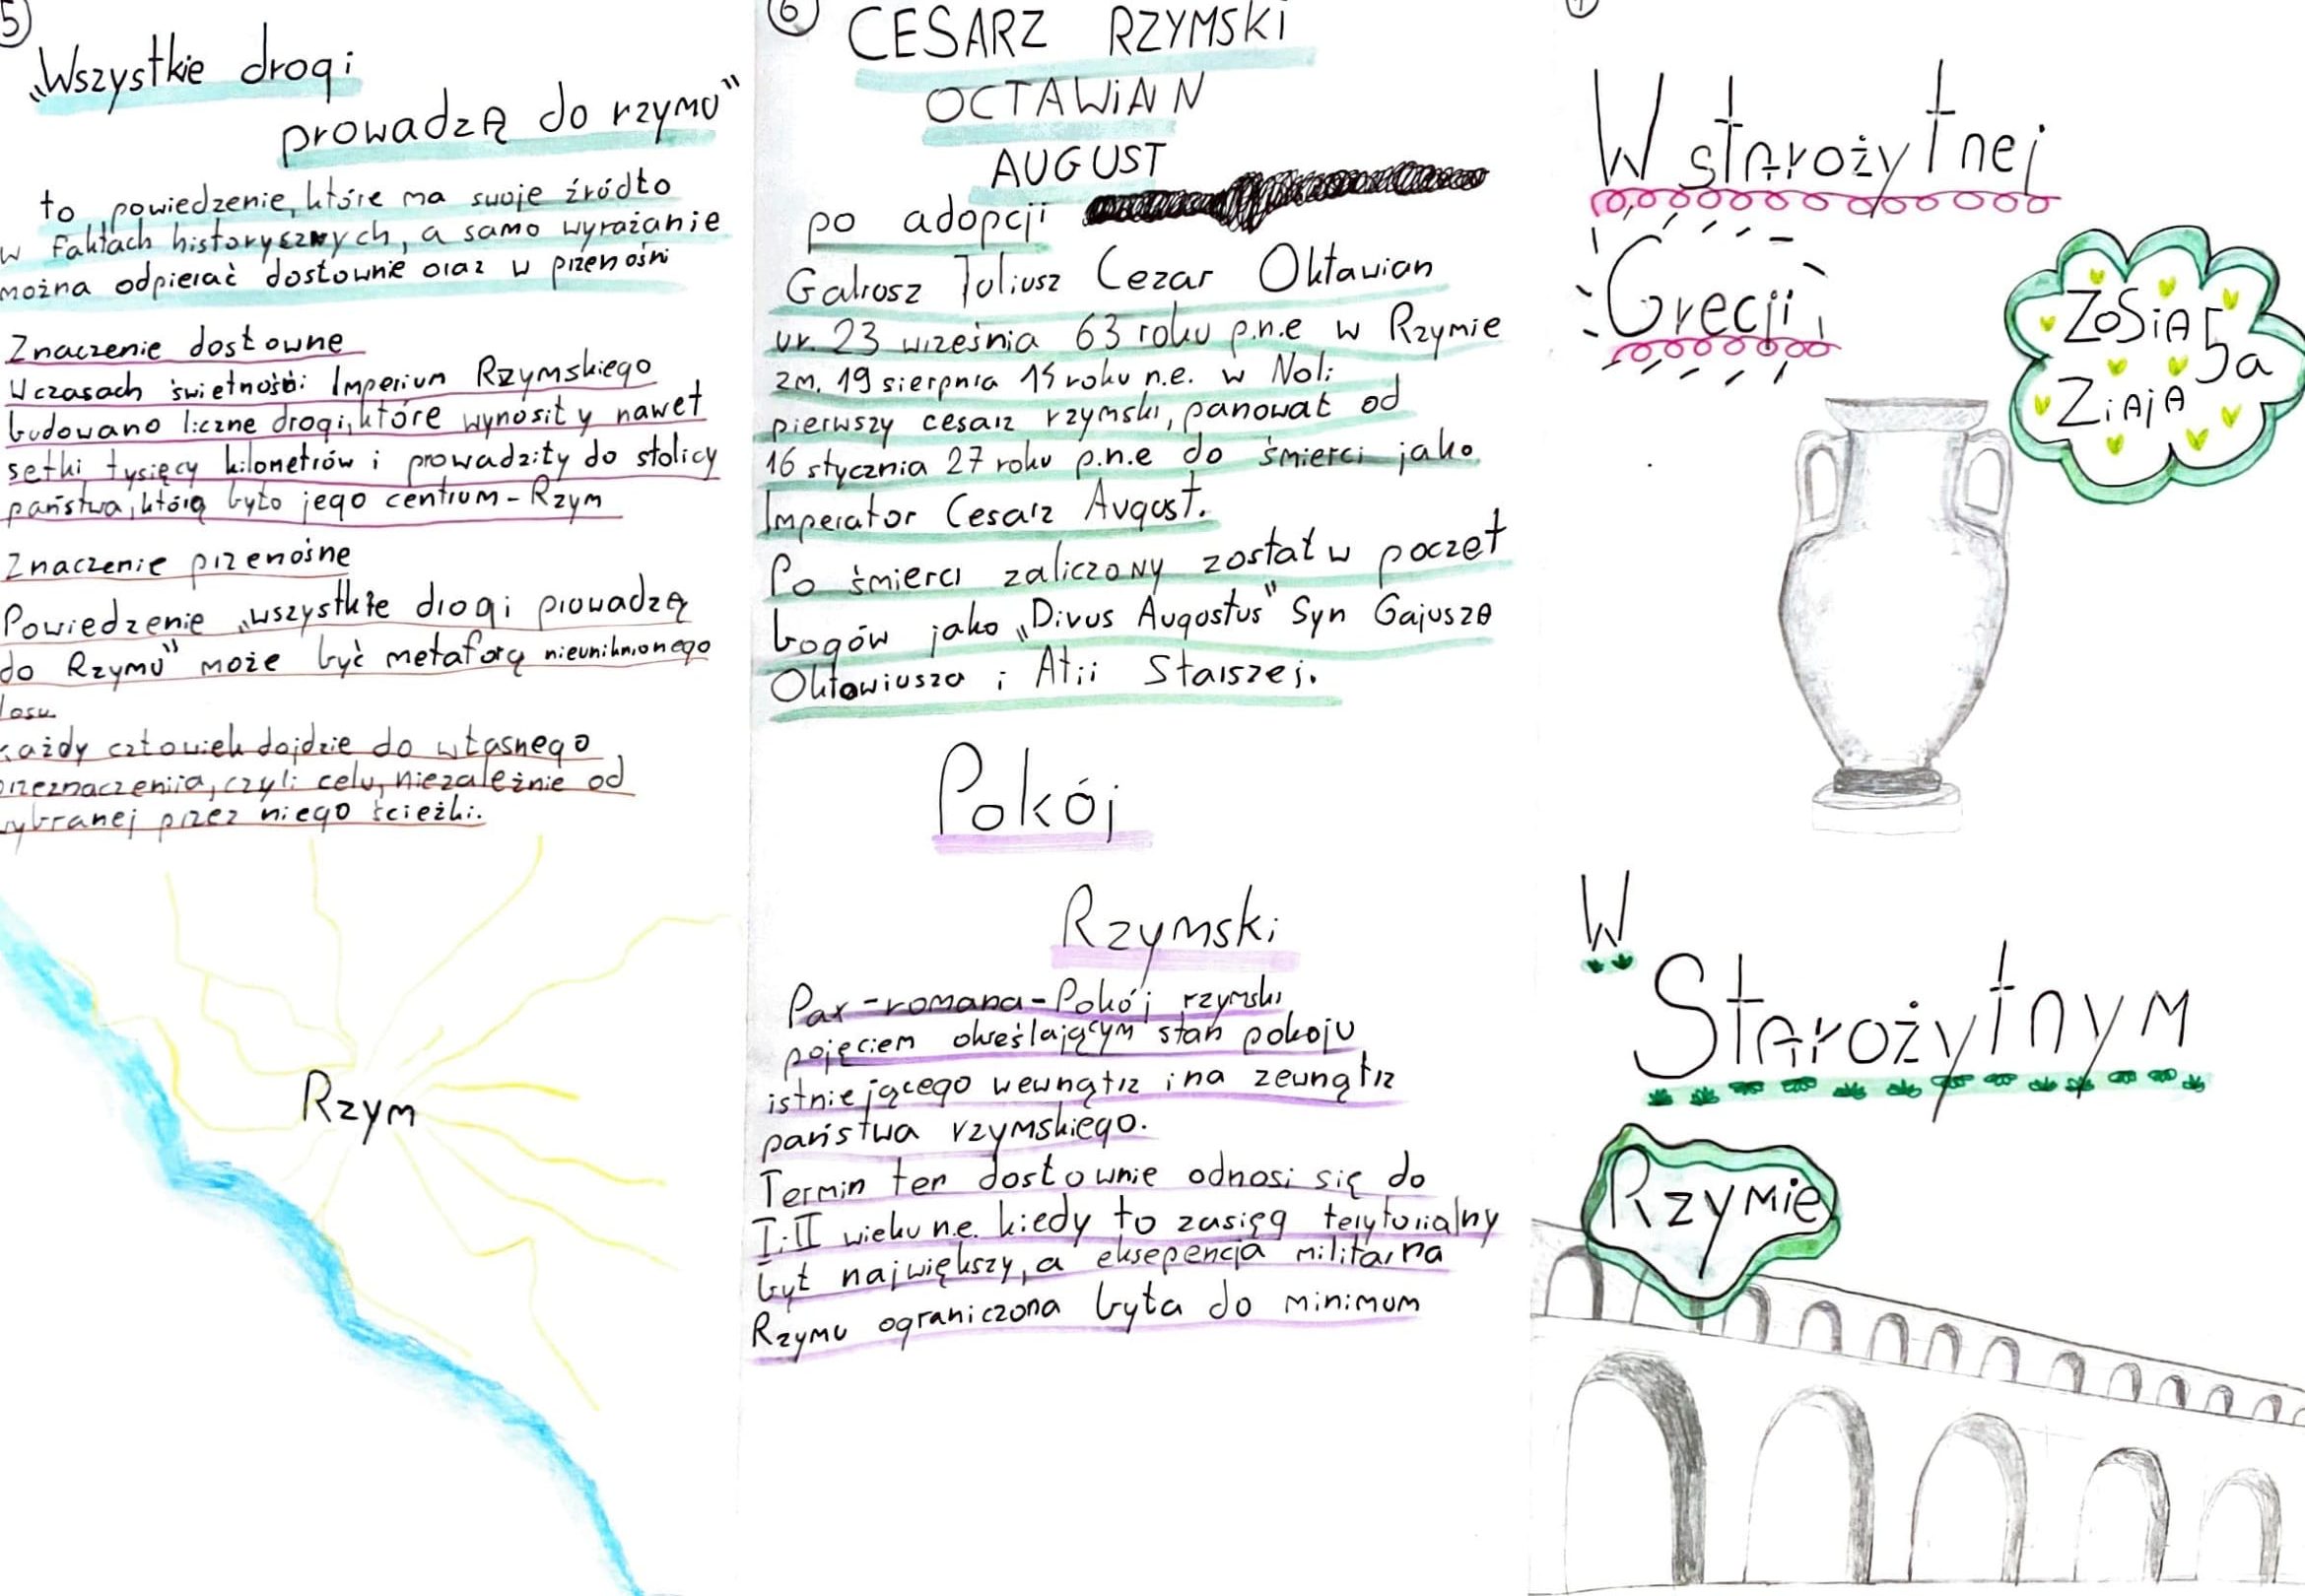 5
„Wszystkie drogi
prowadzą do rzymu"
to powiedzenie, które ma swoje źródło
w faktach historycznych, a samo wyrażanie
można odpierać dosłownie oraz w przenośni
Znaczenie dosłowne
W czasach świetności Imperium Rzymskiego
budowano liczne drogi, które wynosiły nawet
setki tysięcy kilometrów i prowadziły do stolicy
państwa, którą było jego centrum - Rzym
Znaczenie przenośne
Powiedzenie „wszystkie drogi prowadzą
do Rzymu" może być metaforą nieuniknionego
losu.
każdy człowiek dojdzie do własnego
przeznaczeniia, czyli celu, niezależnie od
wybranej przez niego ścieżki.
Rzym
6
CESARZ RZYMSKi
OCTAWiAN
AUGUST
po adopcji
Galiusz Juliusz Cezar Oktawian
ur. 23 września 63 roku p.n.e w Rzymie
zm. 19 sierpnia 14 roku n.e. w Noli
pierwszy cesarz rzymski, panował od
16 stycznia 27 roku p.n.e do śmierci jako
Imperator Cesarz August.
Po śmierci zaliczony został w poczet
bogów jako „Divus Augustus" Syn Gajusza
Oktawiusza i Atii Starszej.
Pokój
Rzymski
Pax-romana-Pokój rzymski
pojęciem określającym stan pokoju
istniejącego wewnątrz i na zewnątrz
państwa rzymskiego.
Termin ten dosłownie odnosi się do
I i II wieku n.e. kiedy to zasięg terytorialny
był największy, a eksepencja militarna
Rzymu ograniczona była do minimum
W starożytnej
Grecji
ZoSiA 5a
ZiAjA
W
Starożytnym
Rzymie